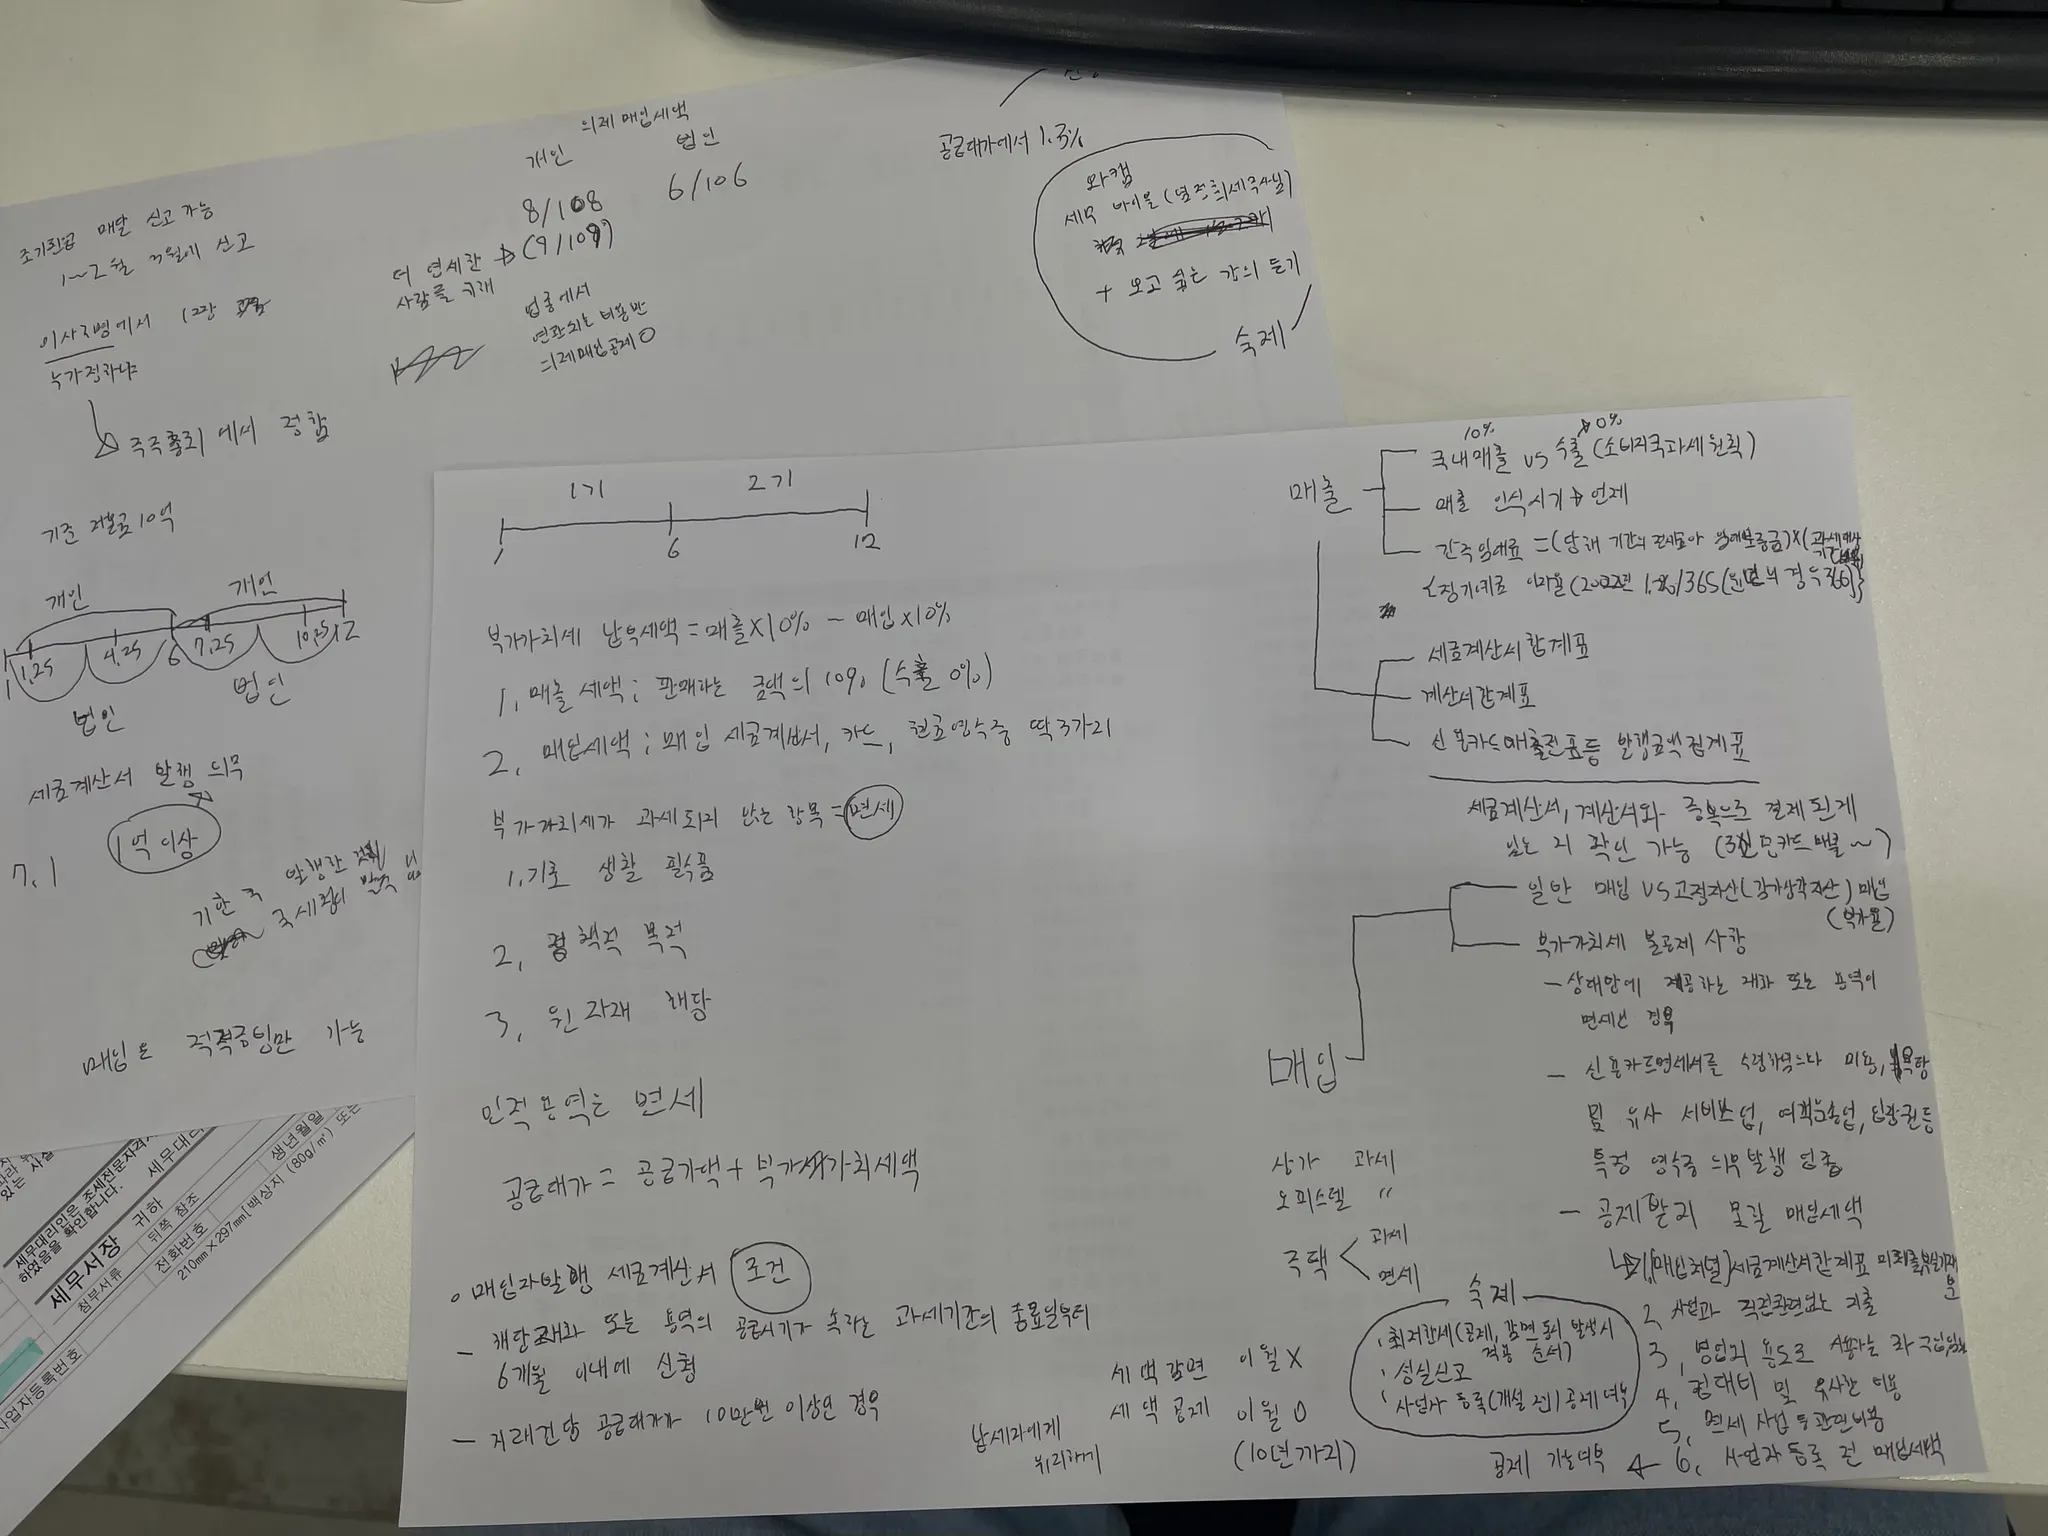 의제매입세액
개인 법인
8/108 6/106
(9/109)
더 영세한
사람을 위해
업종에서
연관되는 비용만
의제매입공제 O
공급대가에서 1.3%
와캠
세무 바이블
+ 보고 싶은 강의 듣기
숙제
조기환급 매달 신고 가능
1~2월 3월에 신고
이사
누가 정하냐
주주총회에서 정함
기준 자본금 10억
개인 개인
1 1.25 4.25 6 7.25 10.25 12
법인 법인
세금계산서 발행 의무
1억 이상
7.1
기한 후 발행한
국세청
매입은 직전승인만 가능
1기 2기
1 6 12
부가가치세 납부세액 = 매출x10% - 매입x10%
1. 매출세액; 판매하는 금액의 10% (수출 0%)
2. 매입세액; 매입 세금계산서, 카드, 현금영수증 딱 3가지
부가가치세가 과세되지 않는 항목 = 면세
1. 기초 생활 필수품
2. 정책적 목적
3. 원자재 해당
인적용역은 면세
공급대가 = 공급가액 + 부가가치세액
매입자발행 세금계산서 조건
- 해당 재화 또는 용역의 공급시기가 속하는 과세기간의 종료일부터
6개월 이내에 신청
- 거래건당 공급대가가 10만원 이상인 경우
매출
10% 0%
국내매출 vs 수출 (소비지국과세원칙)
매출 인식시기 → 언제
간주임대료 = (당해 기간의 전세금 임대보증금)x(과세대상
{정기예금 이자율 (2022년 1.2%)/365 (윤년의 경우 366)}
세금계산서합계표
계산서합계표
신용카드매출전표등 발행금액집계표
세금계산서, 계산서와 중복으로 결제된게
있는지 확인 가능
매입
일반 매입 VS 고정자산(감가상각자산) 매입
부가가치세 불공제 사항
- 상대방에 제공하는 재화 또는 용역이
면세인 경우
- 신용카드명세서를 수령하였으나 미용, 목욕탕
및 유사 서비스업, 여객운송업, 입장권등
특정 영수증 의무발행 업종
- 공제받지 못할 매입세액
1. [매입처별]세금계산서합계표 미제출부실기재
2. 사업과 직접관련없는 지출
3. 영업외 용도로 사용하는 차
4. 접대비 및 유사한 비용
5. 면세 사업 등 관련비용
공제 가능여부 ← 6. 사업자등록 전 매입세액
상가 과세
오피스텔 "
주택 < 과세
면세
숙제
· 최저한세 (공제, 감면 동시 발생시
적용 순서)
· 성실신고
· 사업자 등록(개설 전) 공제 여부
세액감면 이월 X
세액공제 이월 O
(10년까지)
납세자에게
유리하게
세무대리인은 조세전문자격자
하였음을 확인합니다.
세무대리
세무서장 귀하
첨부서류 뒤쪽 참조
생년월일 또는
전화번호
사업자등록번호
210mm×297mm[백상지 (80g/㎡)